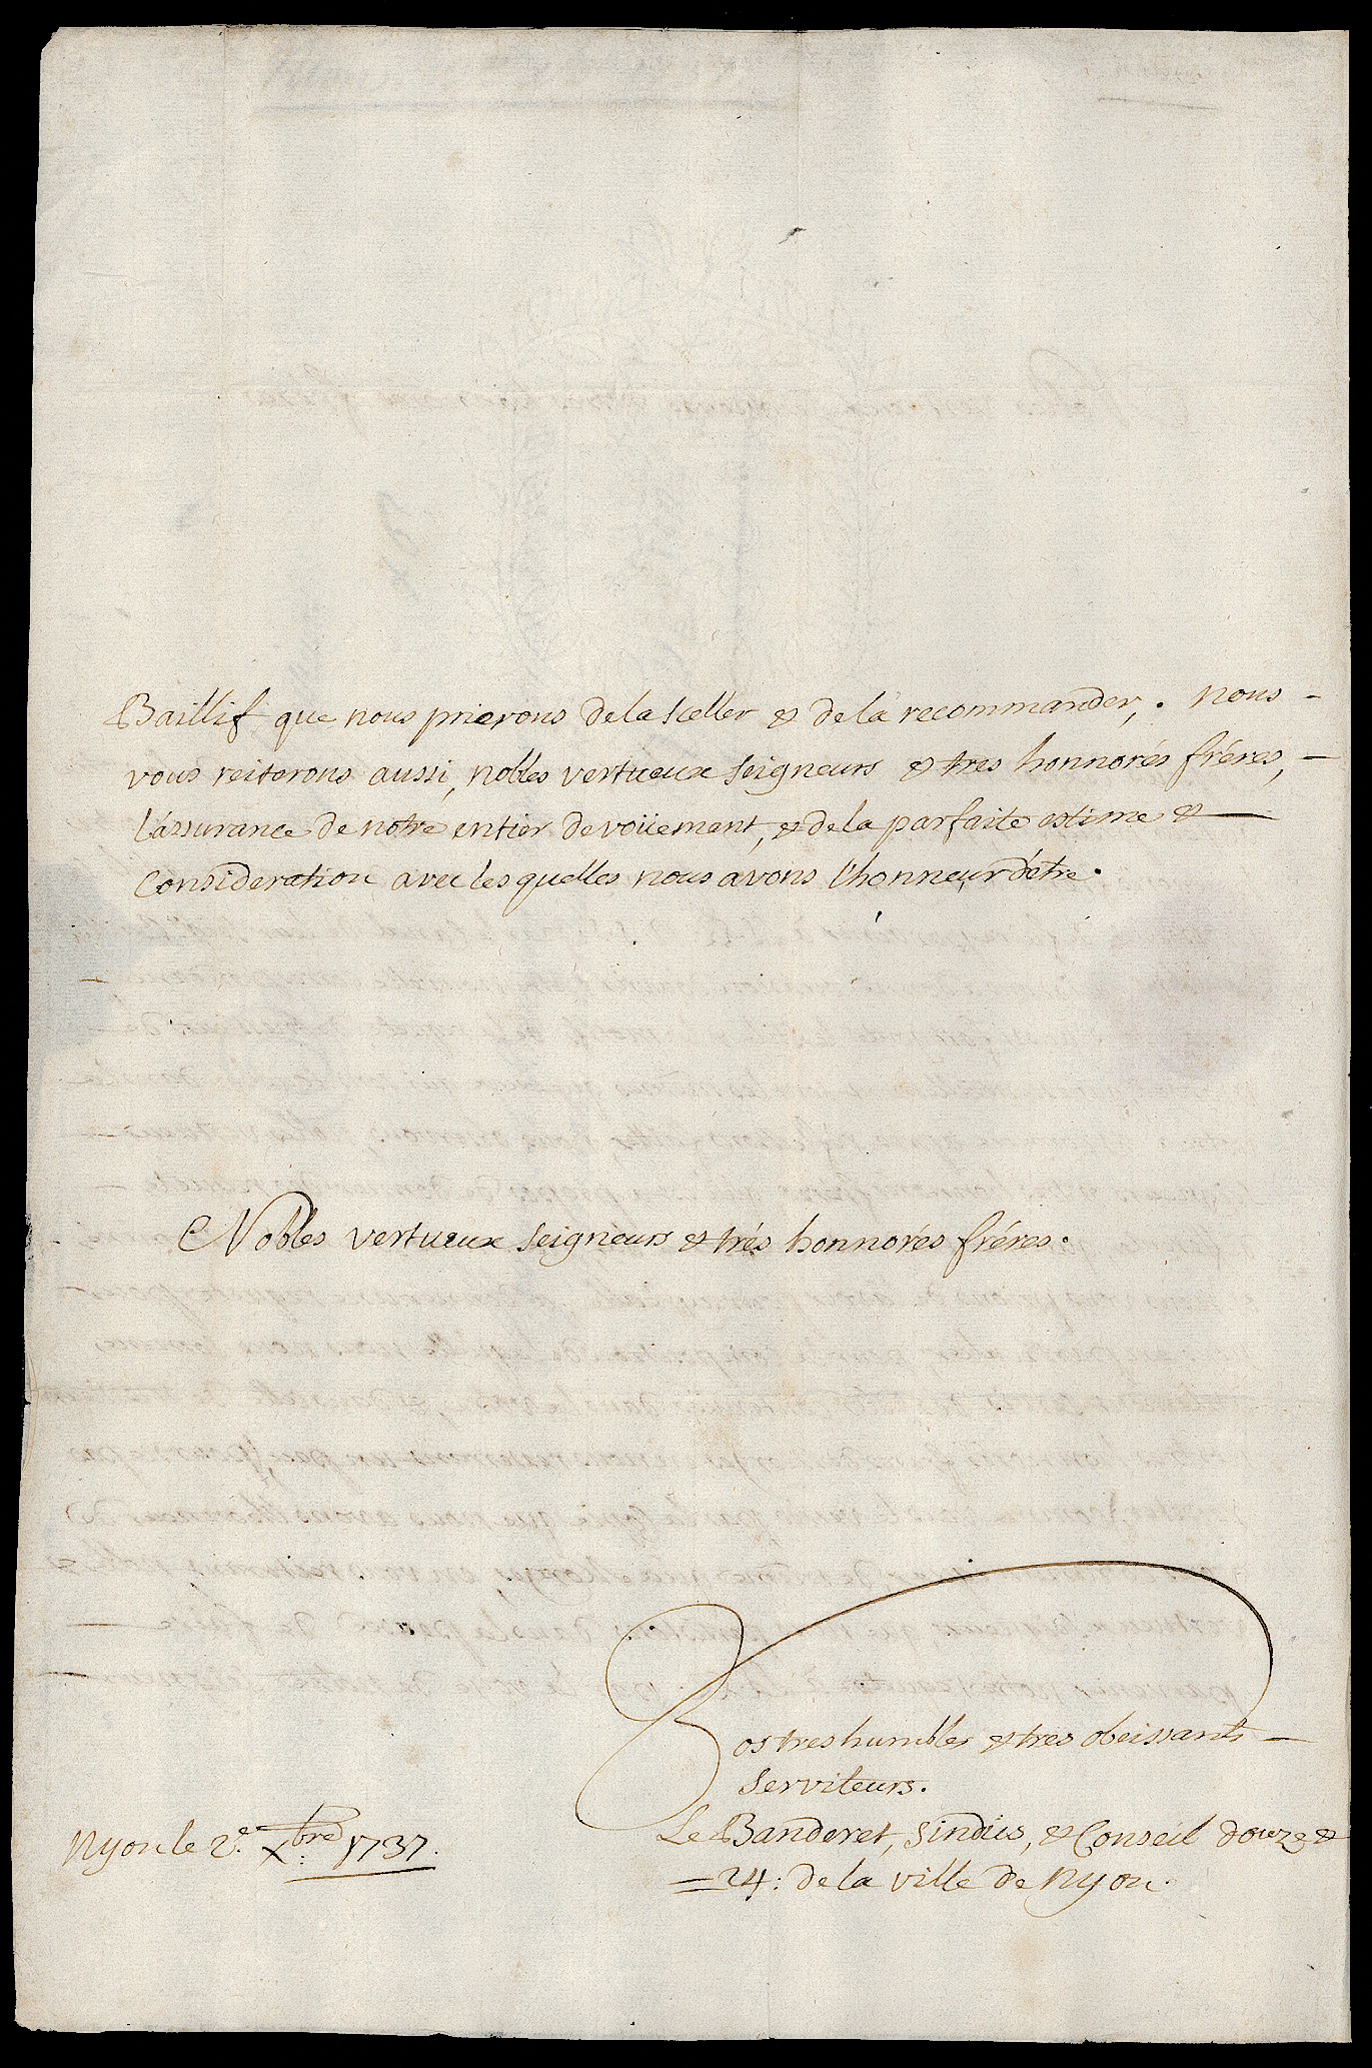 Baillif que nous prierons de la sceller et de la recommander,. Nous -
vous reiterons aussi, nobles vertueux seigneurs et tres honnorés fréres, -
l'assurance de notre entier devoüement, et de la parfaite estime et —
Consideration avec les quelles nous avons l'honneur d'étre.
Nobles vertueux seigneurs et trés honnorés fréres.
Vos tres humbles et tres obeissants —
Serviteurs.
Le Banderet, sindics, et Conseil douze et
=24: de la ville de Nyon.
Nyon le 2e. Xbre: 1737.